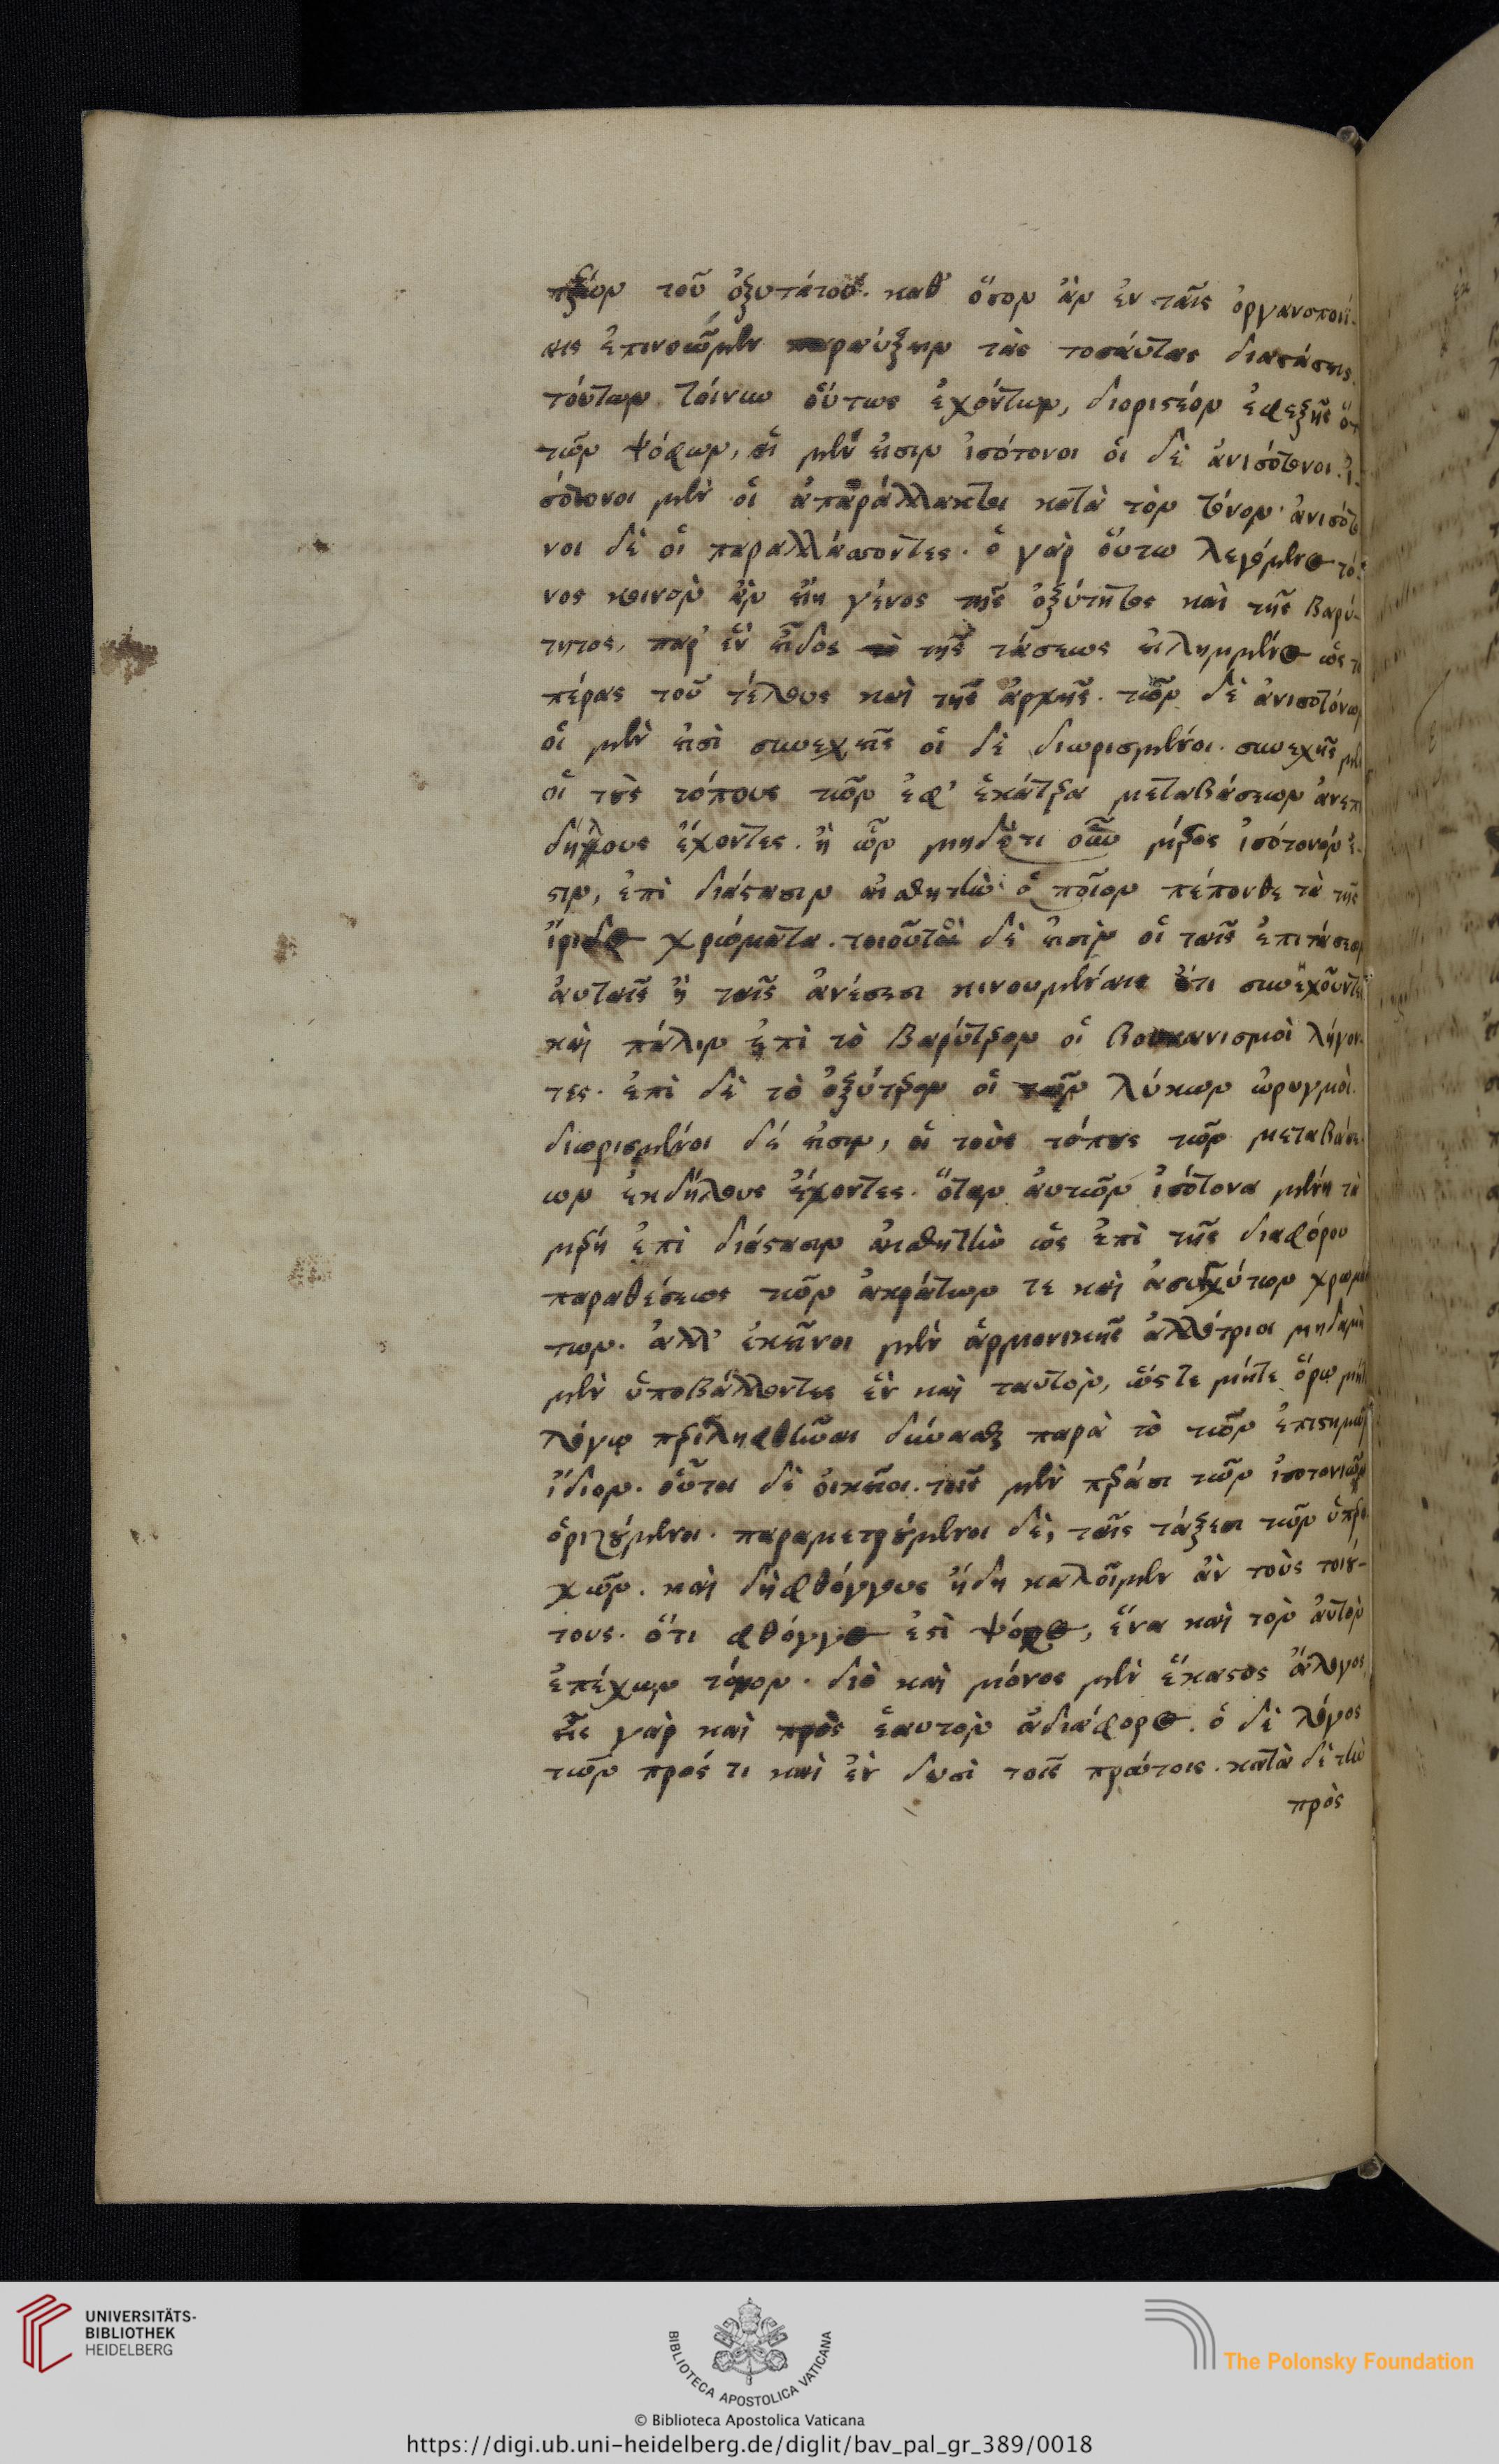 πέρον τοῦ ὀξυτάτου. καθ' ὅσον ἂν ἐν ταῖς ὀργανοποιί-
αις ἐπινοῶμεν παραύξειν τὰς τοσαύτας διαστάσεις.
τούτων τοίνυν οὕτως ἐχόντων, διοριστέον ἐφεξῆς ὅτι
τῶν ψόφων, οἱ μέν εἰσιν ἰσότονοι οἱ δὲ ἀνισότονοι. ἰ-
σότονοι μὲν οἱ ἀπαράλλακτοι κατὰ τὸν τόνον· ἀνισότο
νοι δὲ οἱ παραλλάσσοντες. ὁ γὰρ οὕτω λεγόμενος τό-
νος κοινὸν ἂν εἴη γένος τῆς ὀξύτητος καὶ τῆς βαρύ-
τητος, παρ' ἓν εἶδος τὸ τῆς τάσεως εἰλημμένος ὡς τὸ
πέρας τοῦ τέλους καὶ τῆς ἀρχῆς. τῶν δὲ ἀνισοτόνων
οἱ μὲν εἰσὶ συνεχεῖς οἱ δὲ διωρισμένοι. συνεχεῖς μὲν
οἱ τοὺς τόπους τῶν ἐφ' ἑκάτερα μεταβάσεων ἀνεπι
δήλους ἔχοντες. ἢ ὧν μηδέτι οὖν μέρος ἰσότονόν ἐ-
στιν, ἐπὶ διάστασιν αἰσθητὴν· ὁποῖον πέπονθε τὰ τῆς
ἴριδος χρώματα. τοιοῦτοι δὲ εἰσὶν οἱ ταῖς ἐπιτάσεσιν
αὐταῖς ἢ ταῖς ἀνέσεσι κινουμέναις ἔτι συνηχοῦντες
καὶ πάλιν ἐπὶ τὸ βαρύτερον οἱ βουκανισμοὶ λήγον-
τες. ἐπὶ δὲ τὸ ὀξύτερον οἱ τῶν λύκων ὠρυγμοί.
διωρισμένοι δέ εἰσιν, οἱ τοὺς τόπους τῶν μεταβάσε-
ων ἐκδήλους ἔχοντες. ὅταν αὐτῶν ἰσότονα μένῃ τὰ
μέρη ἐπὶ διάστασιν αἰσθητὴν ὡς ἐπὶ τῆς διαφόρου
παραθέσεως τῶν ἀκράτων τε καὶ ἀσυγχύτων χρωμά
των. ἀλλ' ἐκεῖνοι μὲν ἁρμονικῆς ἀλλότριοι μηδαμῆ
μὲν ὑποβάλλοντες ἓν καὶ ταυτὸν, ὥστε μήτε ὅρῳ μήτε
λόγῳ περιληφθῆναι δύνασθαι παρὰ τὸ τῶν ἐπιστημῶν
ἴδιον. οὗτοι δὲ οἰκεῖοι. τοῖς μὲν πέρασι τῶν ἰσοτονιῶν
ὁριζόμενοι. παραμετρούμενοι δὲ, ταῖς τάξεσι τῶν ὑπερο
χῶν. καὶ δὴ φθόγγους ἤδη καλοῖμεν ἂν τοὺς τοιού-
τους. ὅτι φθόγγος ἐστὶ ψόφος, ἕνα καὶ τὸν αὐτὸν
ἐπέχων τόνον. διὸ καὶ μόνος μὲν ἕκαστος ἄλογος
εἷς γὰρ καὶ πρὸς ἑαυτὸν ἀδιάφορος. ὁ δὲ λόγος
τῶν πρός τι καὶ ἐν δυσὶ τοῖς πρώτοις. κατὰ δὲ τὴν
πρὸς
UNIVERSITÄTS-
BIBLIOTHEK
HEIDELBERG
BIBLIOTECA APOSTOLICA VATICANA
© Biblioteca Apostolica Vaticana
The Polonsky Foundation
https://digi.ub.uni-heidelberg.de/diglit/bav_pal_gr_389/0018